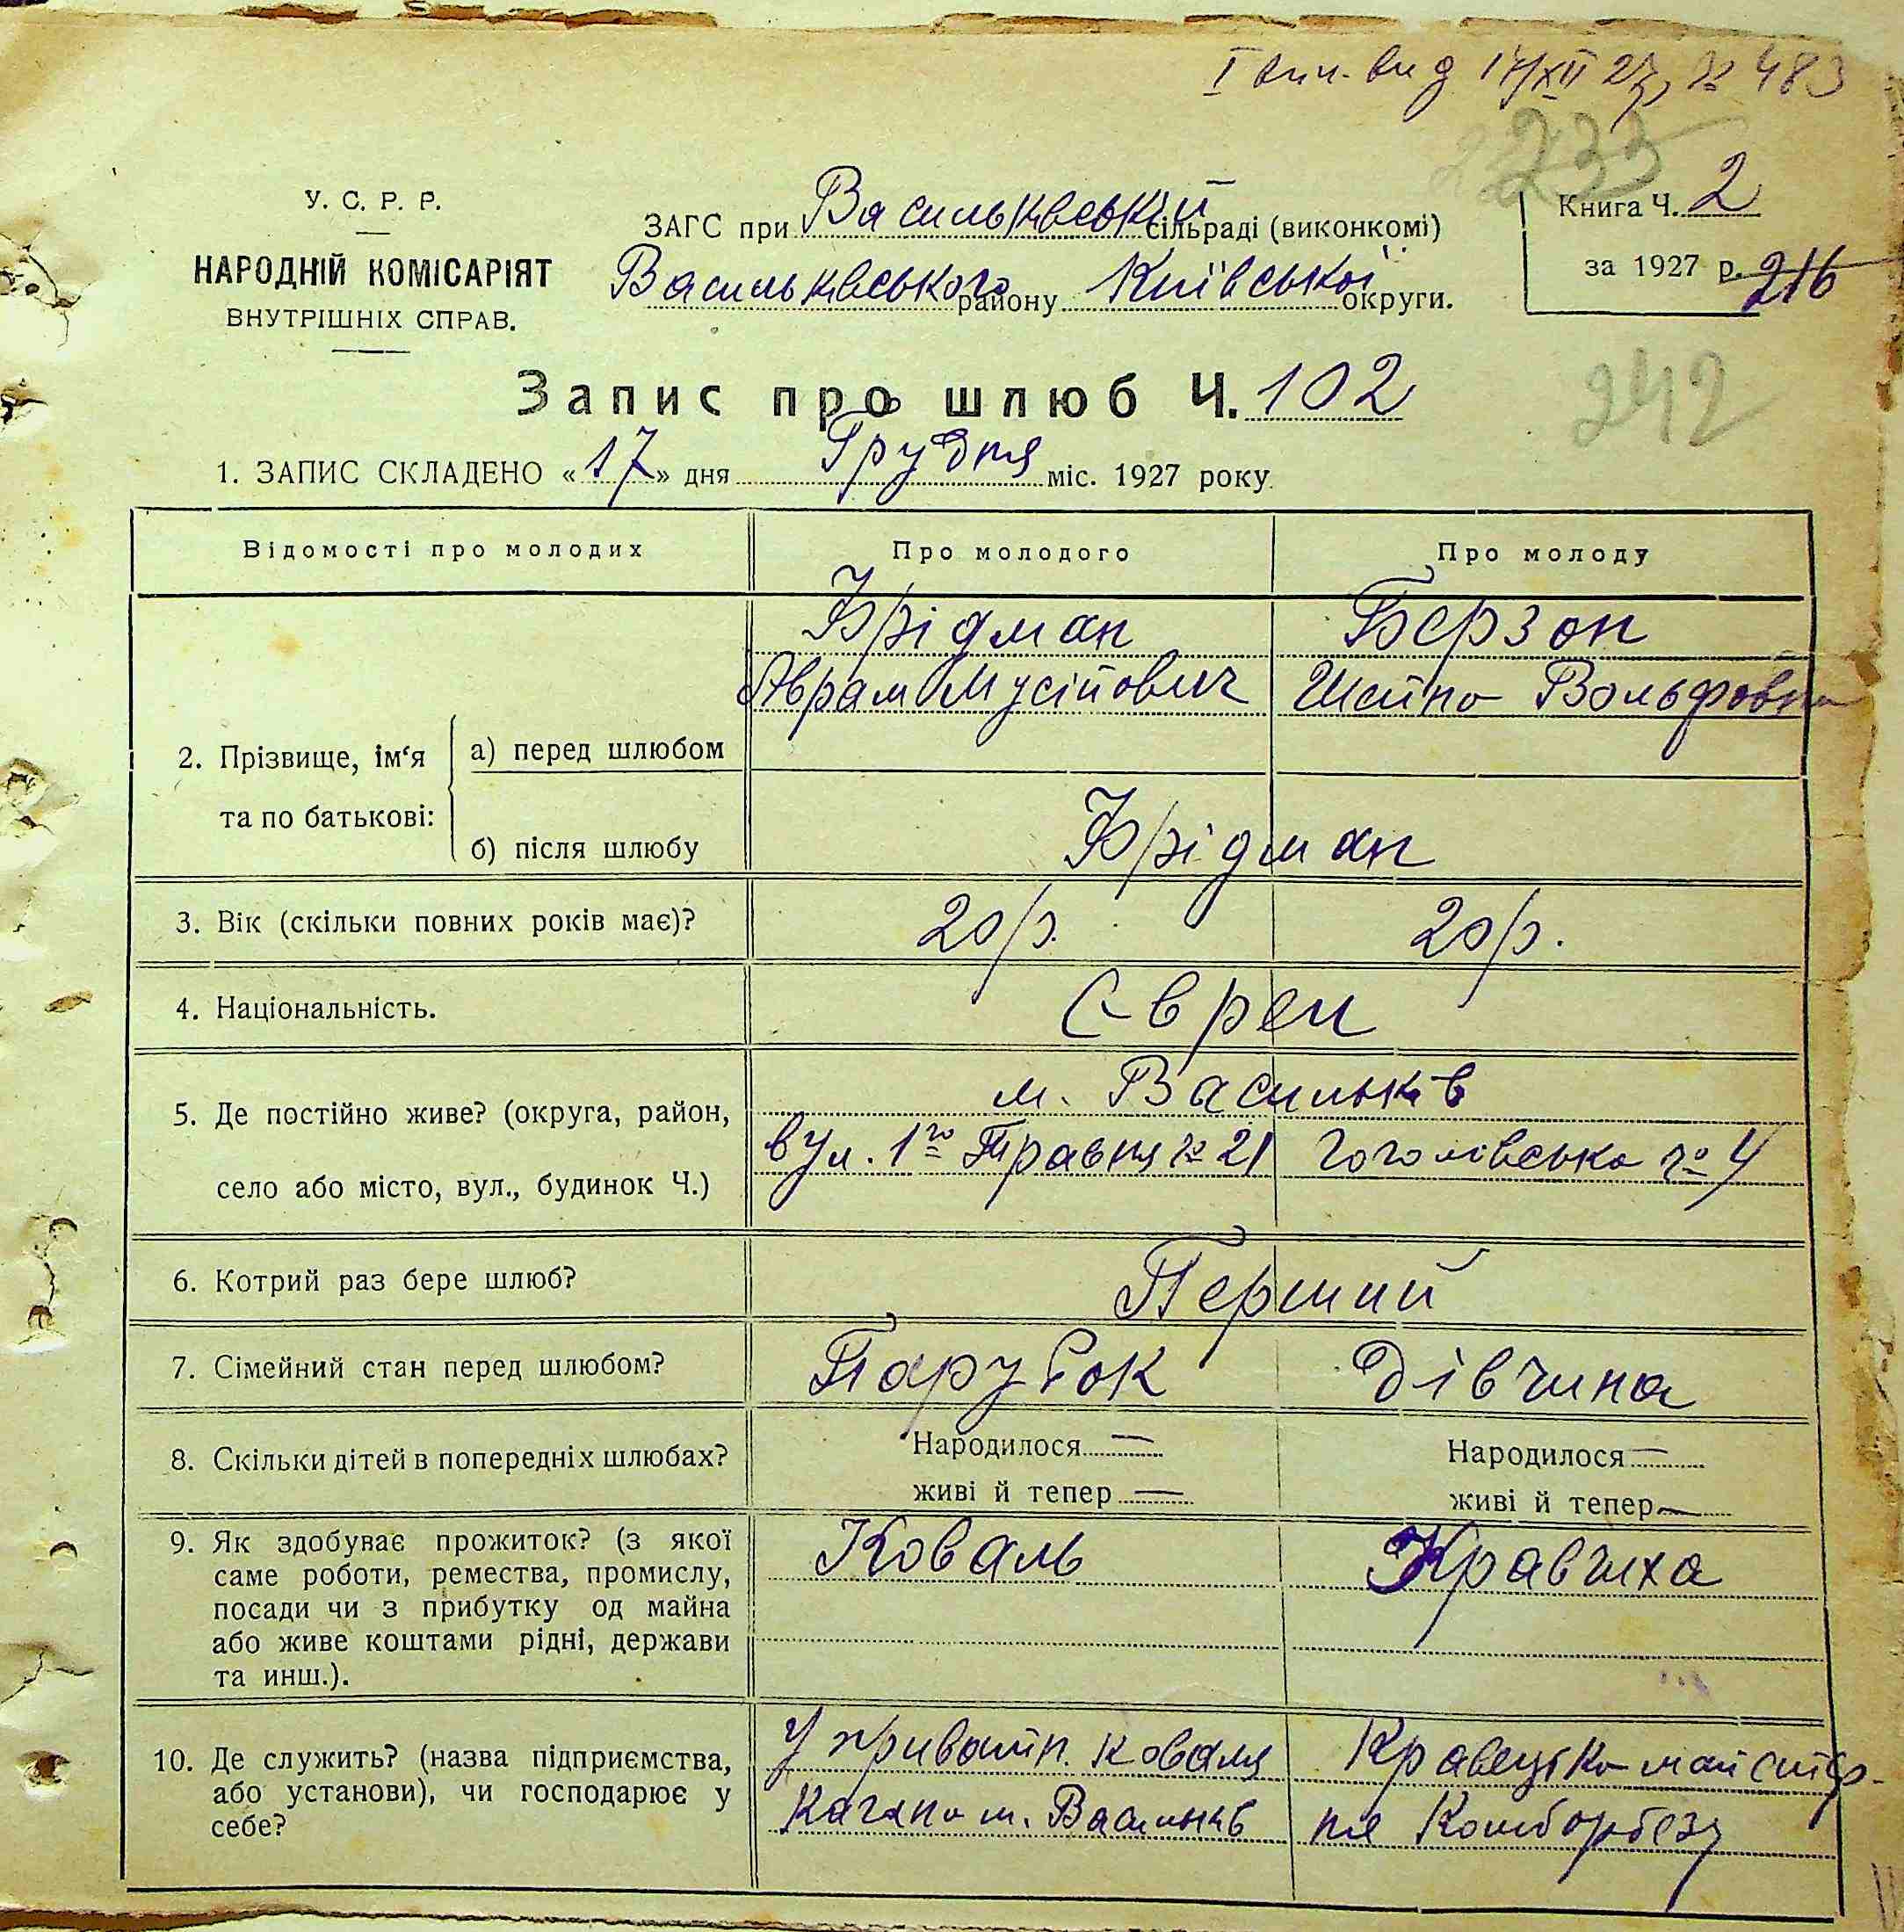 І вип. вид 17/XII 27, № 483
233
У. С. Р. Р.
НАРОДНІЙ КОМІСАРІЯТ
ВНУТРІШНІХ СПРАВ.
ЗАГС при Васильківській сільраді (виконкомі)
Васильківського району Київської округи.
Книга Ч. 2
за 1927 р. 216
Запис про шлюб Ч. 102
242
1. ЗАПИС СКЛАДЕНО «17» дня Грудня міс. 1927 року
Відомості про молодих Про молодого Про молоду
Фрідман Берзон
Аврам Мусійович Шейна Вольфовна
2. Прізвище, ім'я та по батькові: а) перед шлюбом
б) після шлюбу Фрідман
3. Вік (скільки повних років має)? 20 р. 20 р.
4. Національність. Євреи
5. Де постійно живе? (округа, район, м. Васильків
село або місто, вул., будинок Ч.) вул. 1го Травня № 21 Гоголівська № 4
6. Котрий раз бере шлюб? Перший
7. Сімейний стан перед шлюбом? Парубок Дівчина
8. Скільки дітей в попередніх шлюбах? Народилося — Народилося —
живі й тепер — живі й тепер —
9. Як здобуває прожиток? (з якої Коваль Кравчиха
саме роботи, ремества, промислу,
посади чи з прибутку од майна
або живе коштами рідні, держави
та инш.).
10. Де служить? (назва підприємства, У приватн. коваля Кравецька майстер-
або установи), чи господарює у Кагана м. Васильків ня Комборбезу
себе?